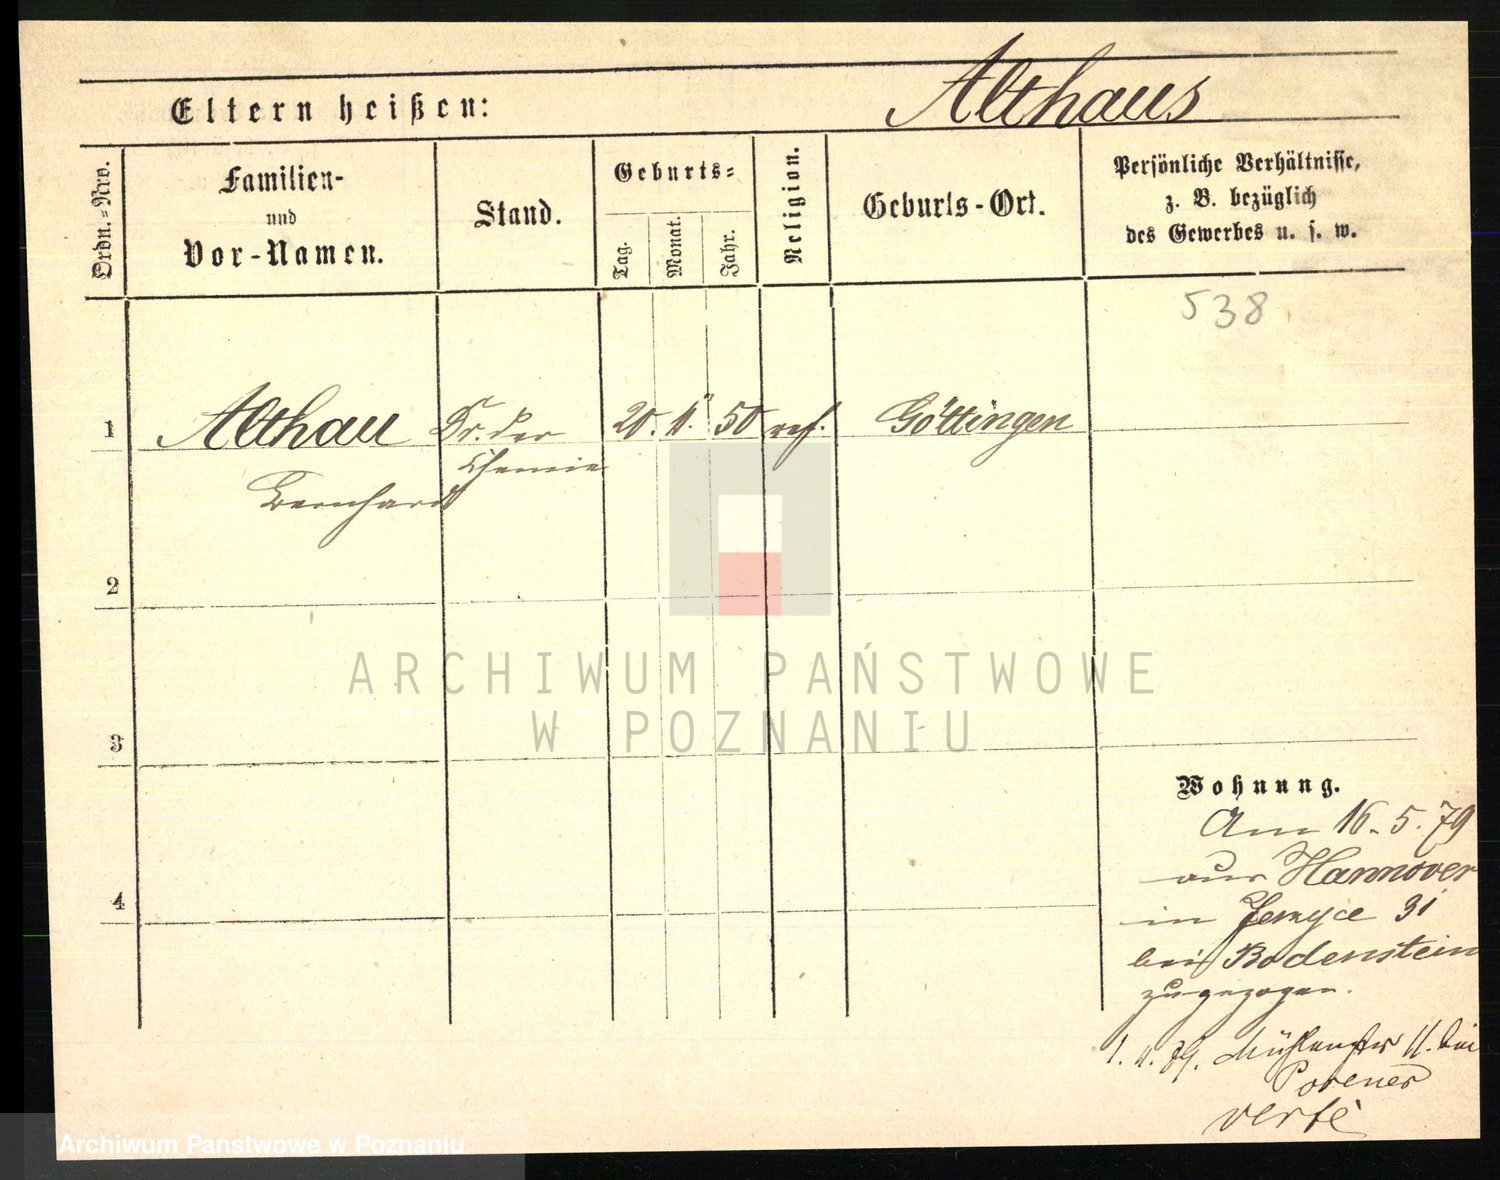 Althaus
Eltern heißen:
Ordn.-Nro.
Familien-
und
Vor-Namen.
Stand.
Geburts-
Tag.
Monat.
Jahr.
Religion.
Geburts-Ort.
Persönliche Verhältnisse,
z. B. bezüglich
des Gewerbes u. s. w.
538
1 Althau Dr. der 20. 11. 50 ref. Göttingen
Chemie
Bernhardt
2
3
4
Wohnung.
Am 16. 5. 79
aus Hannover
in Jerzyce 31
bei Bodenstein
zugezogen.
1. 11. 79. Mühlenstr 11. bei
verte
ARCHIWUM PAŃSTWOWE
W POZNANIU
Archiwum Państwowe w Poznaniu